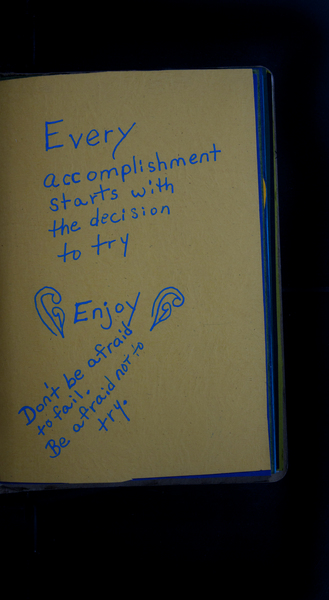 Every
accomplishment
starts with
the decision
to try
Enjoy
Don't be afraid
to fail.
Be afraid not to
try.